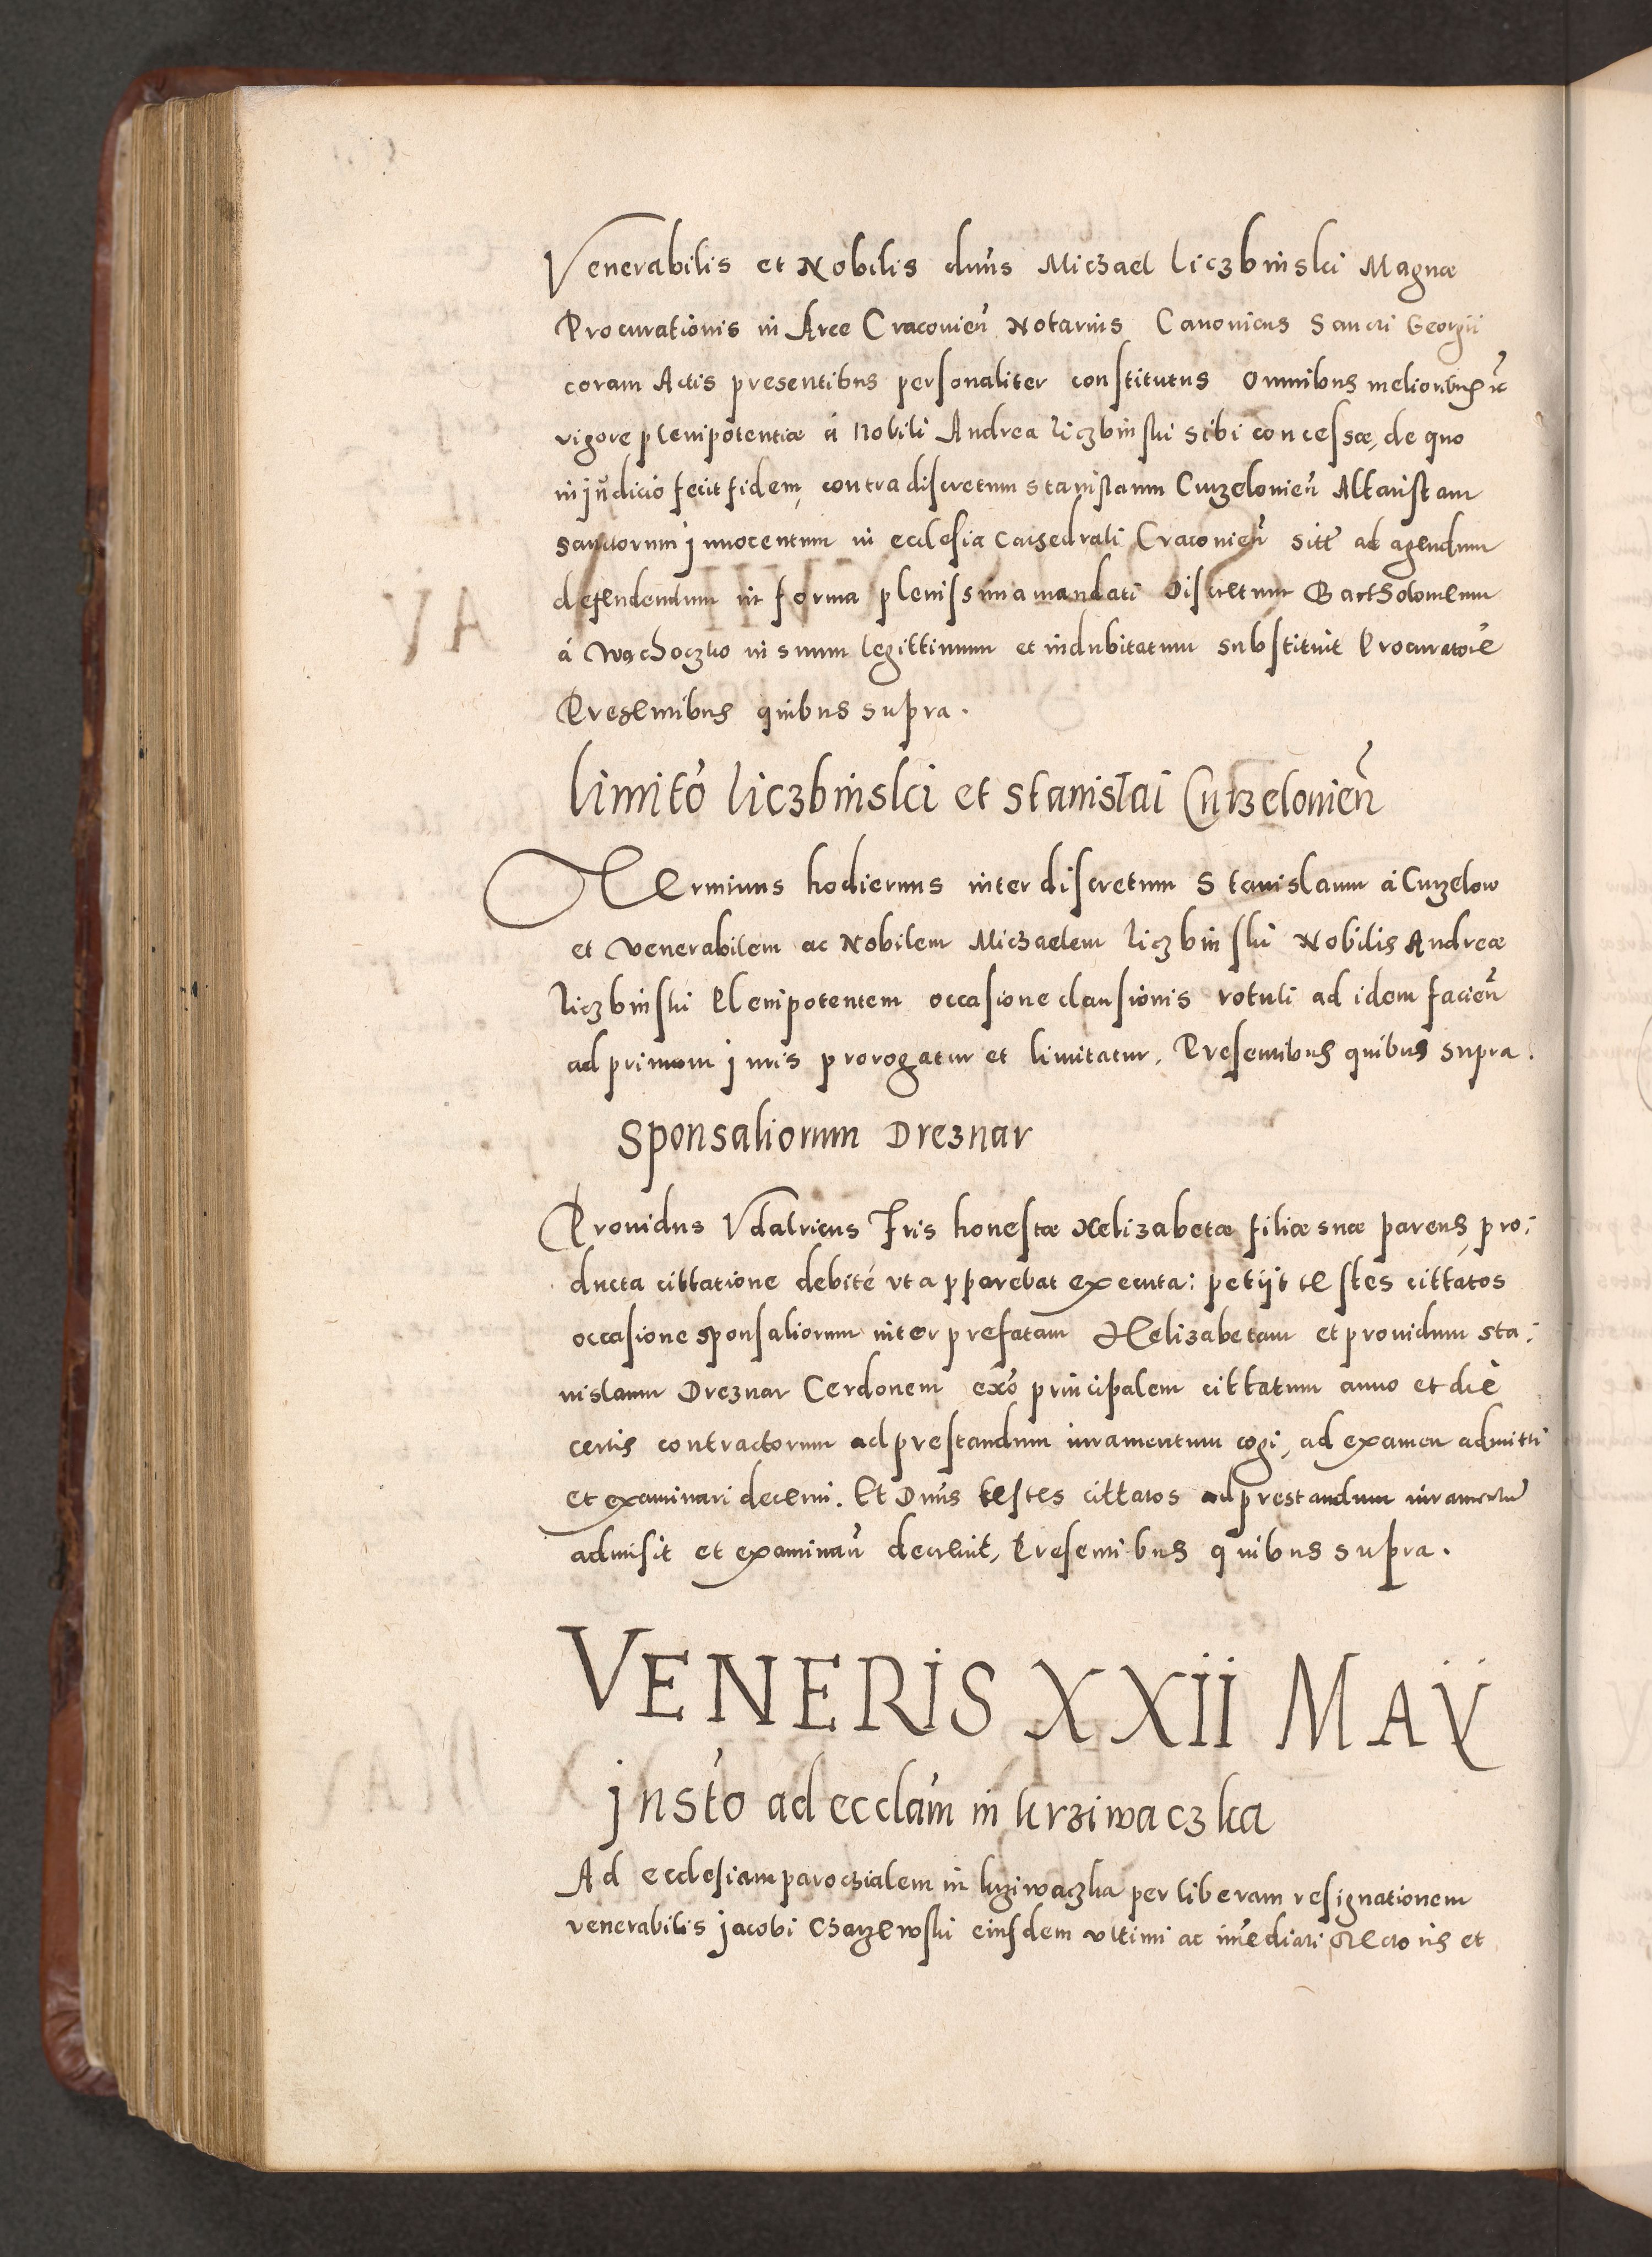 Venerabilis et Nobilis dnus Michael Liczbinski Magnæ
Procurationis in Arce Cracovien̄ Notarius Canonicus Sancti Georgii
coram Actis presentibus personaliter constitutus omnibus melioribus
vigore plenipotentiæ á Nobili Andrea Liczbinski sibi concessæ, de quo
in judicio fecit fidem, contra discretum Stanislaum Curzelovien̄ Altaristam
sanctorum jnnocentum in ecclesia cathedrali Cracovien̄ sitt̄ ad agendum
defendendum in forma plenissima mandati Discretum Bartholomeum
á Wachoczko in suum legittimum et indubitatum substituit Procuratorē
Presentibus quibus supra.
Limito Liczbinski et Stanislai Curzelovien̄
Terminus hodiernus inter discretum Stanislaum á Curzelow
et venerabilem ac Nobilem Michaelem Liczbinski Nobilis Andreæ
Liczbinski Plenipotentem occasione clausionis rotuli ad idem facien̄
ad primum juris prorogatur et limitatur. Presentibus quibus supra.
Sponsaliorum Dreznar
Providus Vdalricus Fris honestæ Helizabetæ filiæ suæ parens, pro:
ducta cittatione debité vt apparebat executa: petijt testes cittatos
occasione sponsaliorum inter prefatam Helizabetam et providum Sta:
nislaum Dreznar Cerdonem exo principalem cittatum anno et die
certis contractorum ad prestandum iuramentum cogi, ad examen admitti
et examinari decerni. Et Dnus testes cittatos ad prestandum iuramentū
admisit et examinan̄ decrevit, Presentibus quibus supra.
VENERIS XXII MAY
jnsto ad ecclām in Krziwaczka
Ad ecclesiam parochialem in Krziwaczka per liberam resignationem
venerabilis jacobi eiusdem vltimi ac im̄ediati Rectoris et